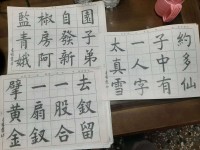 約多仙
子中有
一人字
太真雪
園子弟
白髮新
椒房阿
監青娥
去釵留
一股合
一扇釵
擘黃金